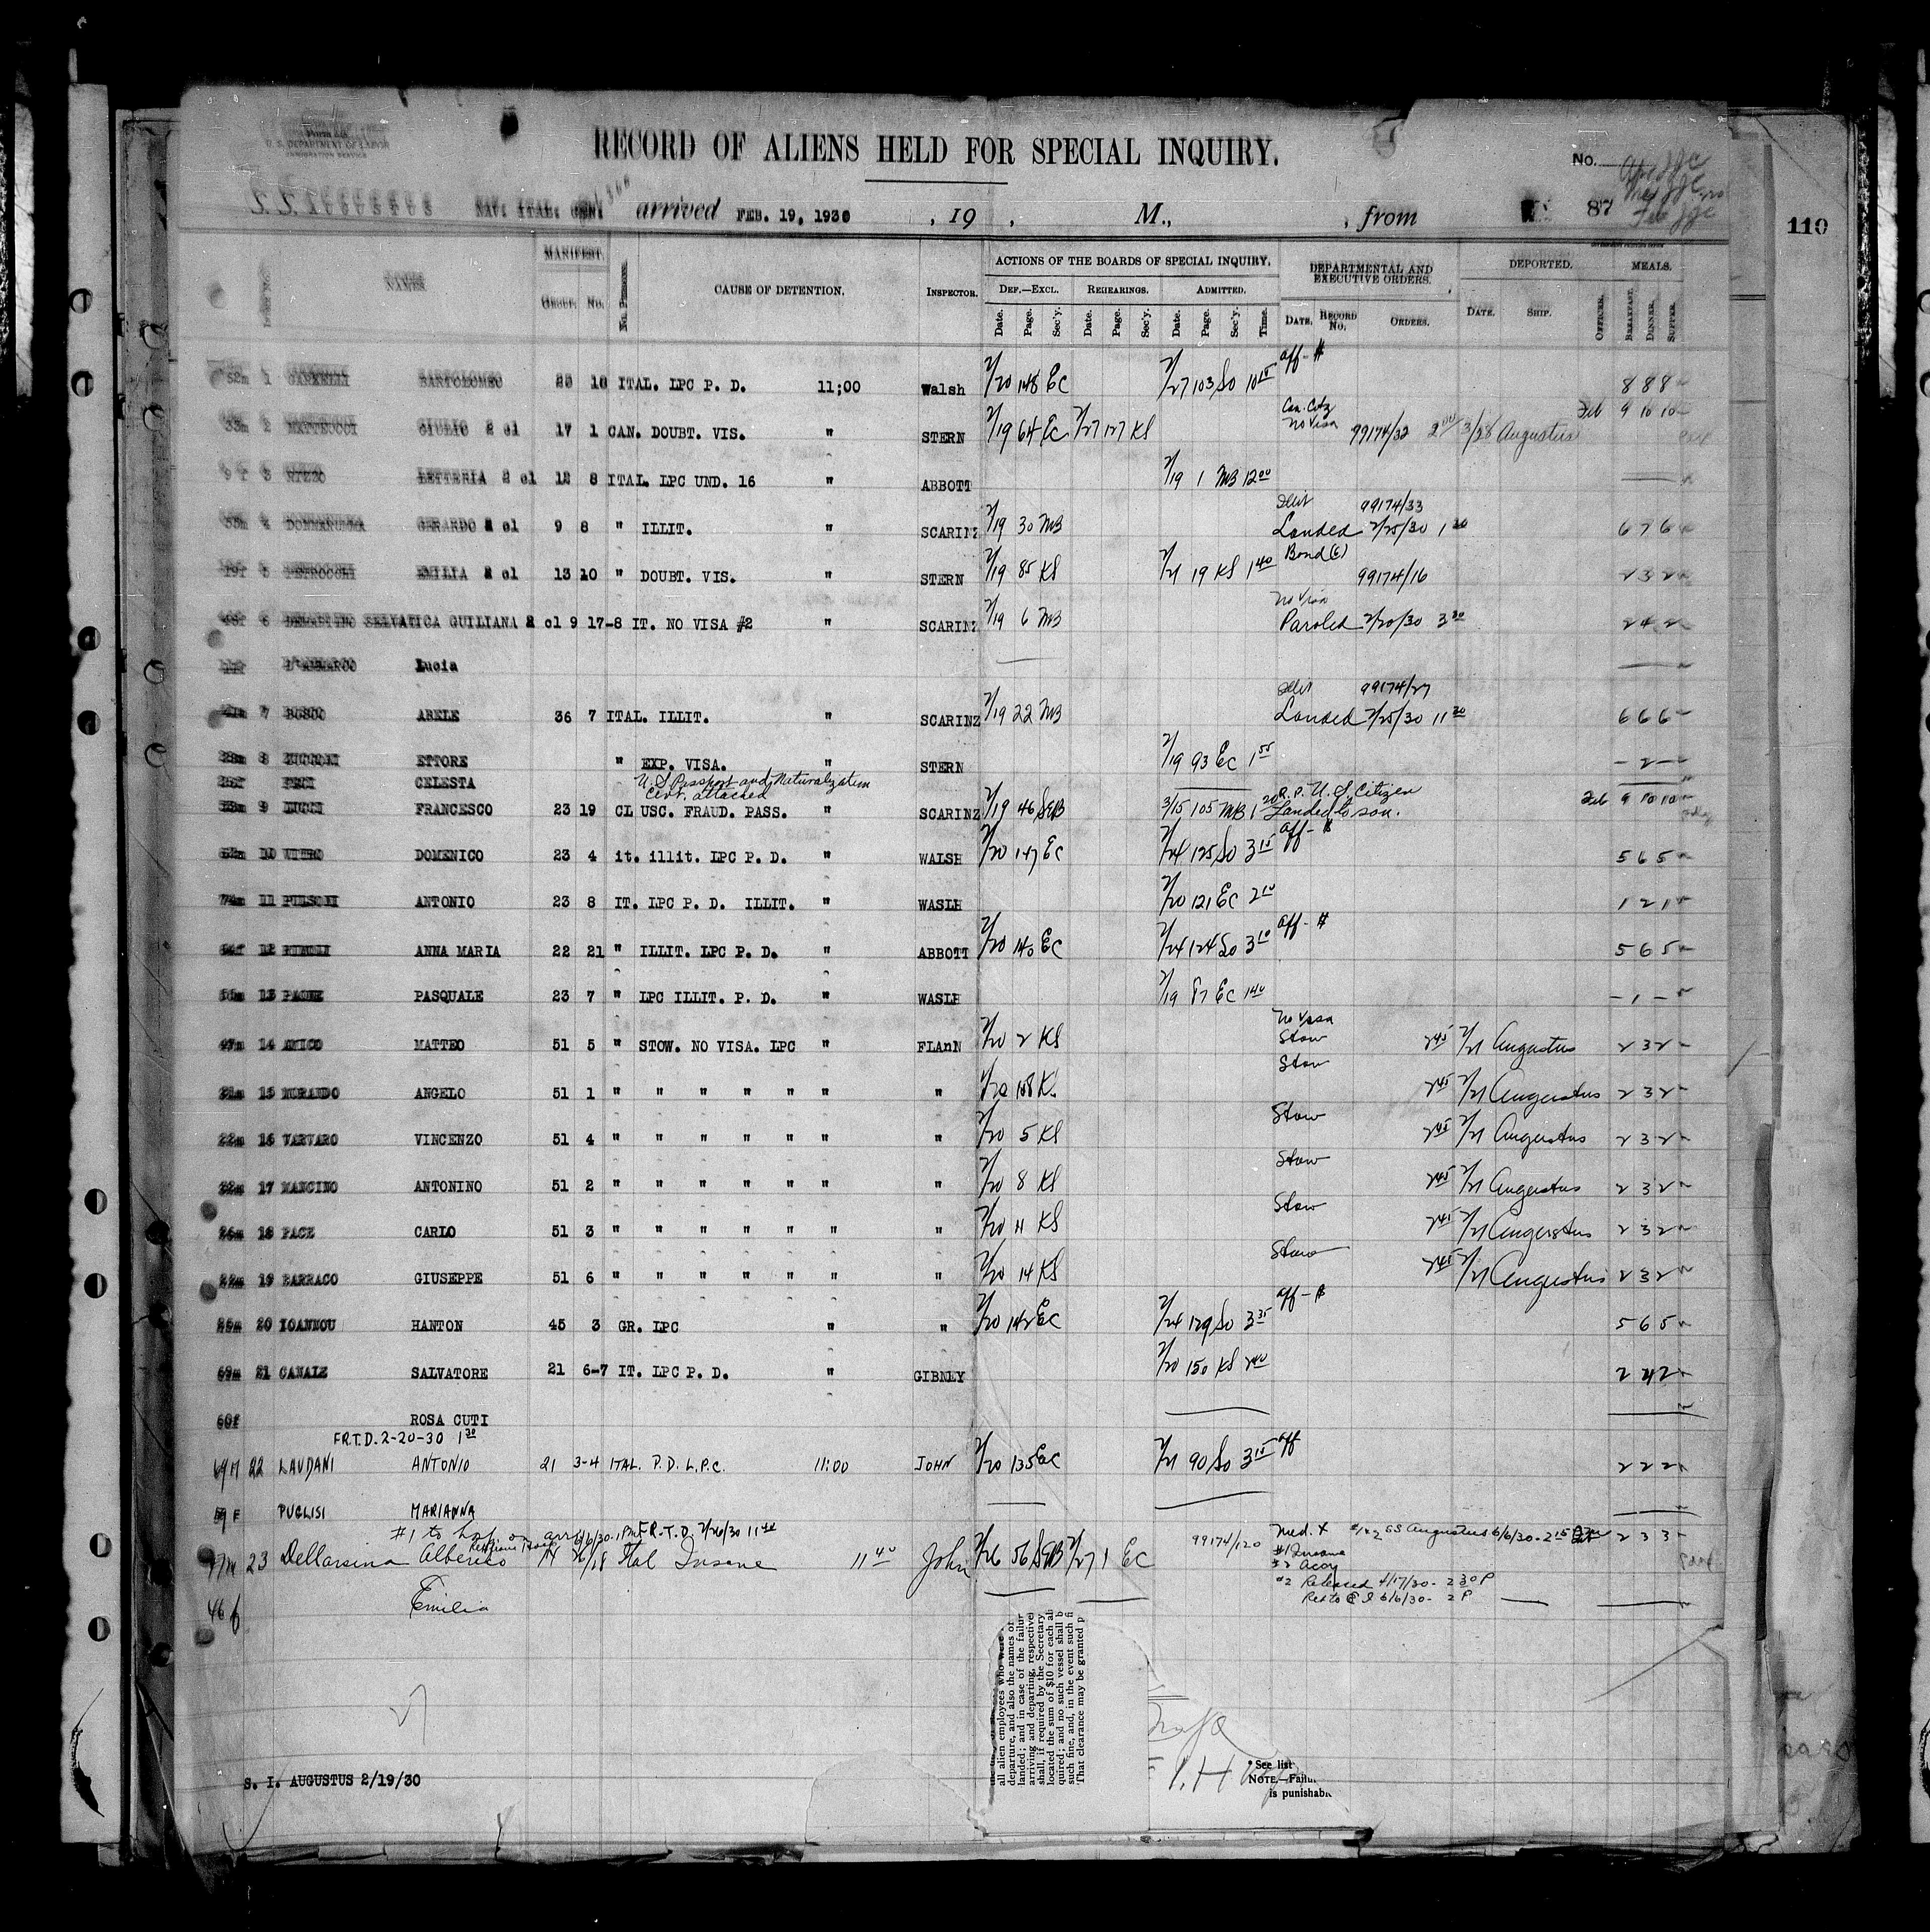 U. S. DEPARTMENT OF LABOR
IMMIGRATION SERVICE
RECORD OF ALIENS HELD FOR SPECIAL INQUIRY.
No.
NAV. ITAL. GEN. arrived FEB. 19, 1930 , 19 , M., , from 87
110
MANIFEST. ACTIONS OF THE BOARDS OF SPECIAL INQUIRY. DEPARTMENTAL AND EXECUTIVE ORDERS. DEPORTED. MEALS.
NAMES. GROUP. No. CAUSE OF DETENTION. INSPECTOR. DEF.—EXCL. REHEARINGS. ADMITTED.
Date. Page. Sec'y. Date. Page. Sec'y. Date. Page. Sec'y. Time. DATE. RECORD No. ORDERS. DATE. SHIP. OFFICER. BREAKFAST. DINNER. SUPPER.
aff-$
52m 1 BARTOLOMEO 18 ITAL. LPC P. D. 11;00 Walsh 2/20 148 EC 2/27 103 So 10 15 8 8 8
Can. Citz
No Visa
33m 2 MATTEUCCI GIULIO 2 cl 17 1 CAN. DOUBT. VIS. " STERN 2/19 64 EC 2/27 127 KS 99174/32 2 00 3/28 Augustus Feb 9 10 10
9 f 3 RIZZO LETTERIA 2 cl 12 8 ITAL. LPC UND. 16 " ABBOTT 2/19 1 MB 12 00
Illit 99174/33
4 DONNARUMMA GERARDO 2 cl 9 8 " ILLIT. " SCARINZ 2/19 30 MB Landed 2/25/30 1 30 6 7 6
Bond
19f 5 PETROCCHI EMILIA 2 cl 13 10 " DOUBT. VIS. " STERN 2/19 85 KS 2/21 19 KS 1 40 99174/16 2 3 2
No Visa
6 SELVATICA GUILIANA 2 cl 9 17-8 IT. NO VISA #2 " SCARINZ 2/19 6 MB Paroled 2/20/30 3 30 2 4 2
11f D'AMMARCO Lucia
Illit 99174/27
21m 7 BOSCO ABELE 36 7 ITAL. ILLIT. " SCARINZ 2/19 22 MB Landed 2/25/30 11 30 6 6 6
8 ETTORE " EXP. VISA. " STERN 2/19 93 EC 1 55 - 2 -
25f CELESTA U. S Passport and Naturalization
Cert. attached
R. P. U. S. Citizen
53m 9 LUCCI FRANCESCO 23 19 CL USC. FRAUD. PASS. " SCARINZ 2/19 46 SEB 3/15 105 MB 1 20 Landed to son. Feb 9 10 10
aff-$
10 DOMENICO 23 4 it. illit. LPC P. D. " WALSH 2/20 147 EC 2/24 125 So 3 15 5 6 5
11 ANTONIO 23 8 IT. LPC P. D. ILLIT. " WASLH 2/20 121 EC 2 10 1 2 1
aff-$
12 ANNA MARIA 22 21 " ILLIT. LPC P. D. " ABBOTT 2/20 140 EC 2/24 124 So 3 10 5 6 5
13 PASQUALE 23 7 " LPC ILLIT. P. D. " WASLH 2/19 87 EC 1 40 - 1 -
No Visa
Stow
47m 14 AMICO MATTEO 51 5 " STOW. NO VISA. LPC " FLAnN 2/20 2 KS 2 45 2/21 Augustus 2 3 2
Stow
21m 15 MORANDO ANGELO 51 1 " " " " " " " 2 45 2/21 Augustus 2 3 2
Stow
22m 16 VARVARO VINCENZO 51 4 " " " " " " " 2/20 5 KS 2 45 2/21 Augustus 2 3 2
Stow
32m 17 MANCINO ANTONINO 51 2 " " " " " " " 2/20 8 KS 2 45 2/21 Augustus 2 3 2
Stow
26m 18 PACE CARLO 51 3 " " " " " " " 2/20 11 KS 2 45 2/21 Augustus 2 3 2
Stow
22m 19 BARRACO GIUSEPPE 51 6 " " " " " " " 2/20 14 KS 2 45 2/21 Augustus 2 3 2
aff-$
20 IOANNOU HANTON 45 3 GR. LPC " " 2/20 142 EC 2/24 129 So 3 35 5 6 5
69m 21 CANALE SALVATORE 21 6-7 IT. LPC P. D. " GIBNEY 2/20 150 KS 2 40 2 4 2
60f ROSA CUTI
F.R.T.D. 2-20-30 1 30
69M 22 LAUDANI ANTONIO 21 3-4 ITAL. P. D. L.P.C. 11:00 JOHN 2/20 135 EC 2/21 90 So 3 15 aff 2 2 2
F PUGLISI MARIANNA
#1 to hosp on arr F.R.T.D. 2/26/30 11 40
47m 23 Dellarsina Alberico 14 Ital Insane 11 40 John 2/26 56 SEB 2/27 1 EC 99174/120 Med. #1&2 SS Augustus 6/6/30-2 15 2 3 3
#1 Insane
#2 Accy
#2 Released 4/17/30 - 2 30 P
6/6/30 - 2 P
46 f Emilia
all alien employees who were
departure, and also the names of
landed; and in case of the failur
arriving and departing, respectivel
shall, if required by the Secretary
located the sum of $10 for each ali
quired; and no such vessel shall b
such fine, and, in the event such fi
That clearance may be granted p
See list
NOTE.—Failur
is punishabl
S. I. AUGUSTUS 2/19/30